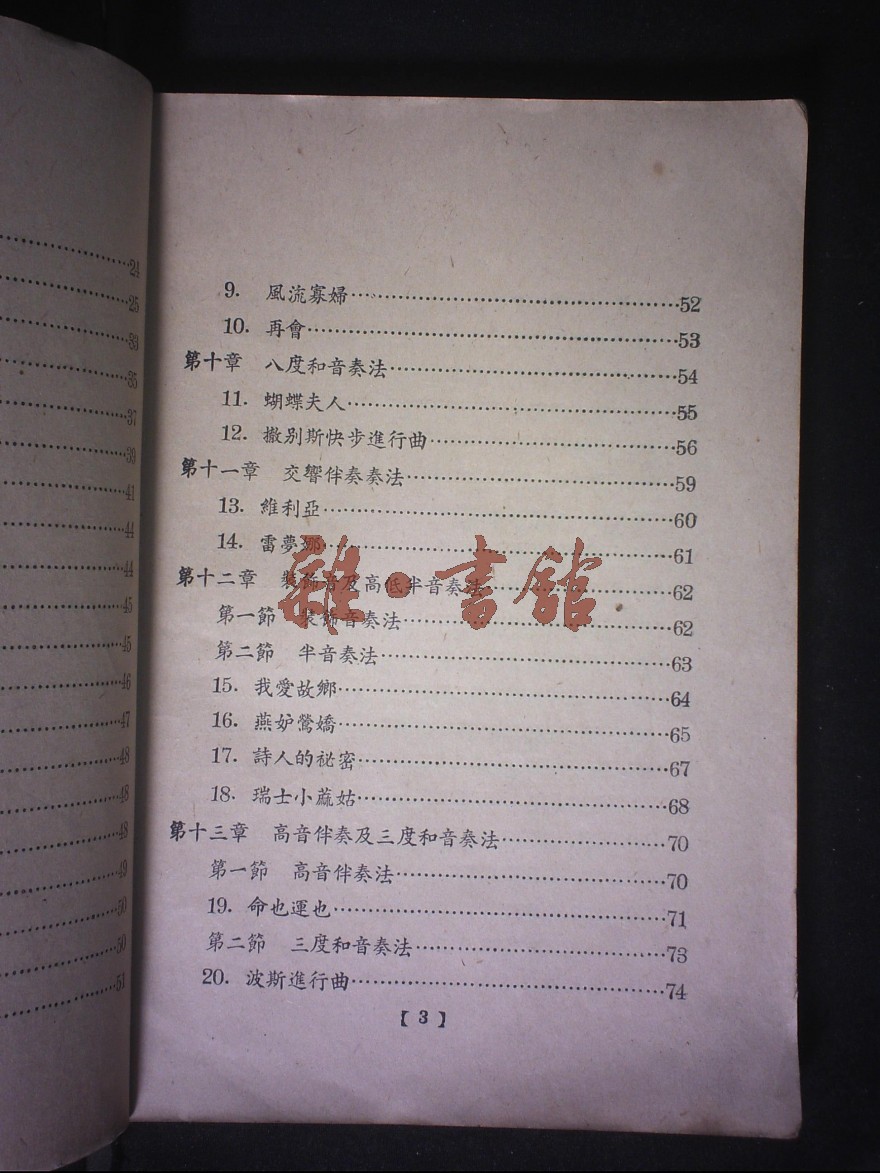 24
25
33
35
37
39
41
44
44
45
45
46
47
48
48
48
49
50
50
51
9. 風流寡婦……52
10. 再會……53
第十章 八度和音奏法……54
11. 蝴蝶夫人……55
12. 撒别斯快步進行曲……56
第十一章 交響伴奏奏法……59
13. 維利亞……60
14. 雷夢娜……61
第十二章 裝飾音及高低半音奏法……62
第一節 裝飾音奏法……62
第二節 半音奏法……63
15. 我愛故鄉……64
16. 燕妒鶯嬌……65
17. 詩人的祕密……67
18. 瑞士小蔴姑……68
第十三章 高音伴奏及三度和音奏法……70
第一節 高音伴奏法……70
19. 命也運也……71
第二節 三度和音奏法……73
20. 波斯進行曲……74
【 3 】
雜·書館